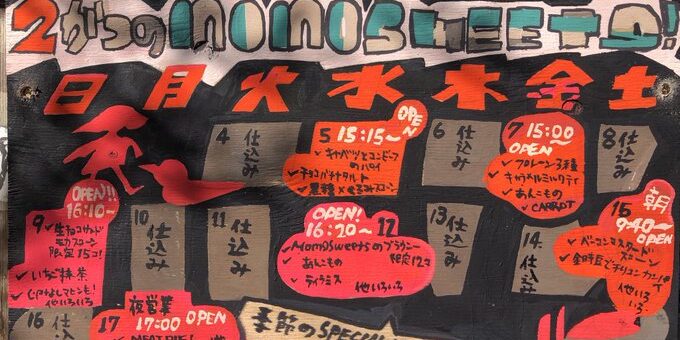 2からのMOMOSWEETS!!
日 月 火 水 木 金 土
4 仕込み
5 15:15〜 OPEN
✓キャベツとコンビーフのパイ
✓チョコバナナタルト
✓黒糖×くるみスコーン
6 仕込み
7 15:00〜
OPEN
✓プレーン3種
✓キャラメルミルクティ
✓あんこもの
✓CARROT
8 仕込み
OPEN!!
9 16:10〜
限定15コ!
✓いちご抹茶
他いろいろ
10 仕込み
11 仕込み
OPEN!
16:20〜 12
✓MomoSweetsのブラウニー
限定12コ
✓あんこもの
✓ティラミス
他いろいろ
13 仕込み
14 仕込み
15 朝
9:40〜
OPEN
✓ベーコンマスタードスコーン
他いろいろ
16 仕込
17 夜営業
17:00 OPEN
季節のSPECIAL